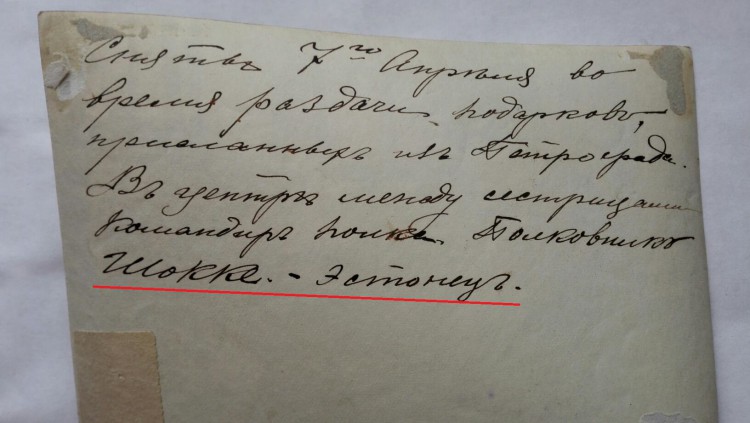 Сняты 7го Апрѣля во
время раздачи подарковъ,
присланныхъ изъ Петрограда.
Въ центрѣ между сестрицами
Командиръ полка Полковникъ
Шокке. - Эстонецъ.